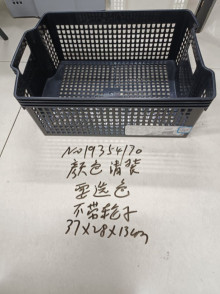 No19354170
颜色清装
要选色
不带轮子
37X28X13cm